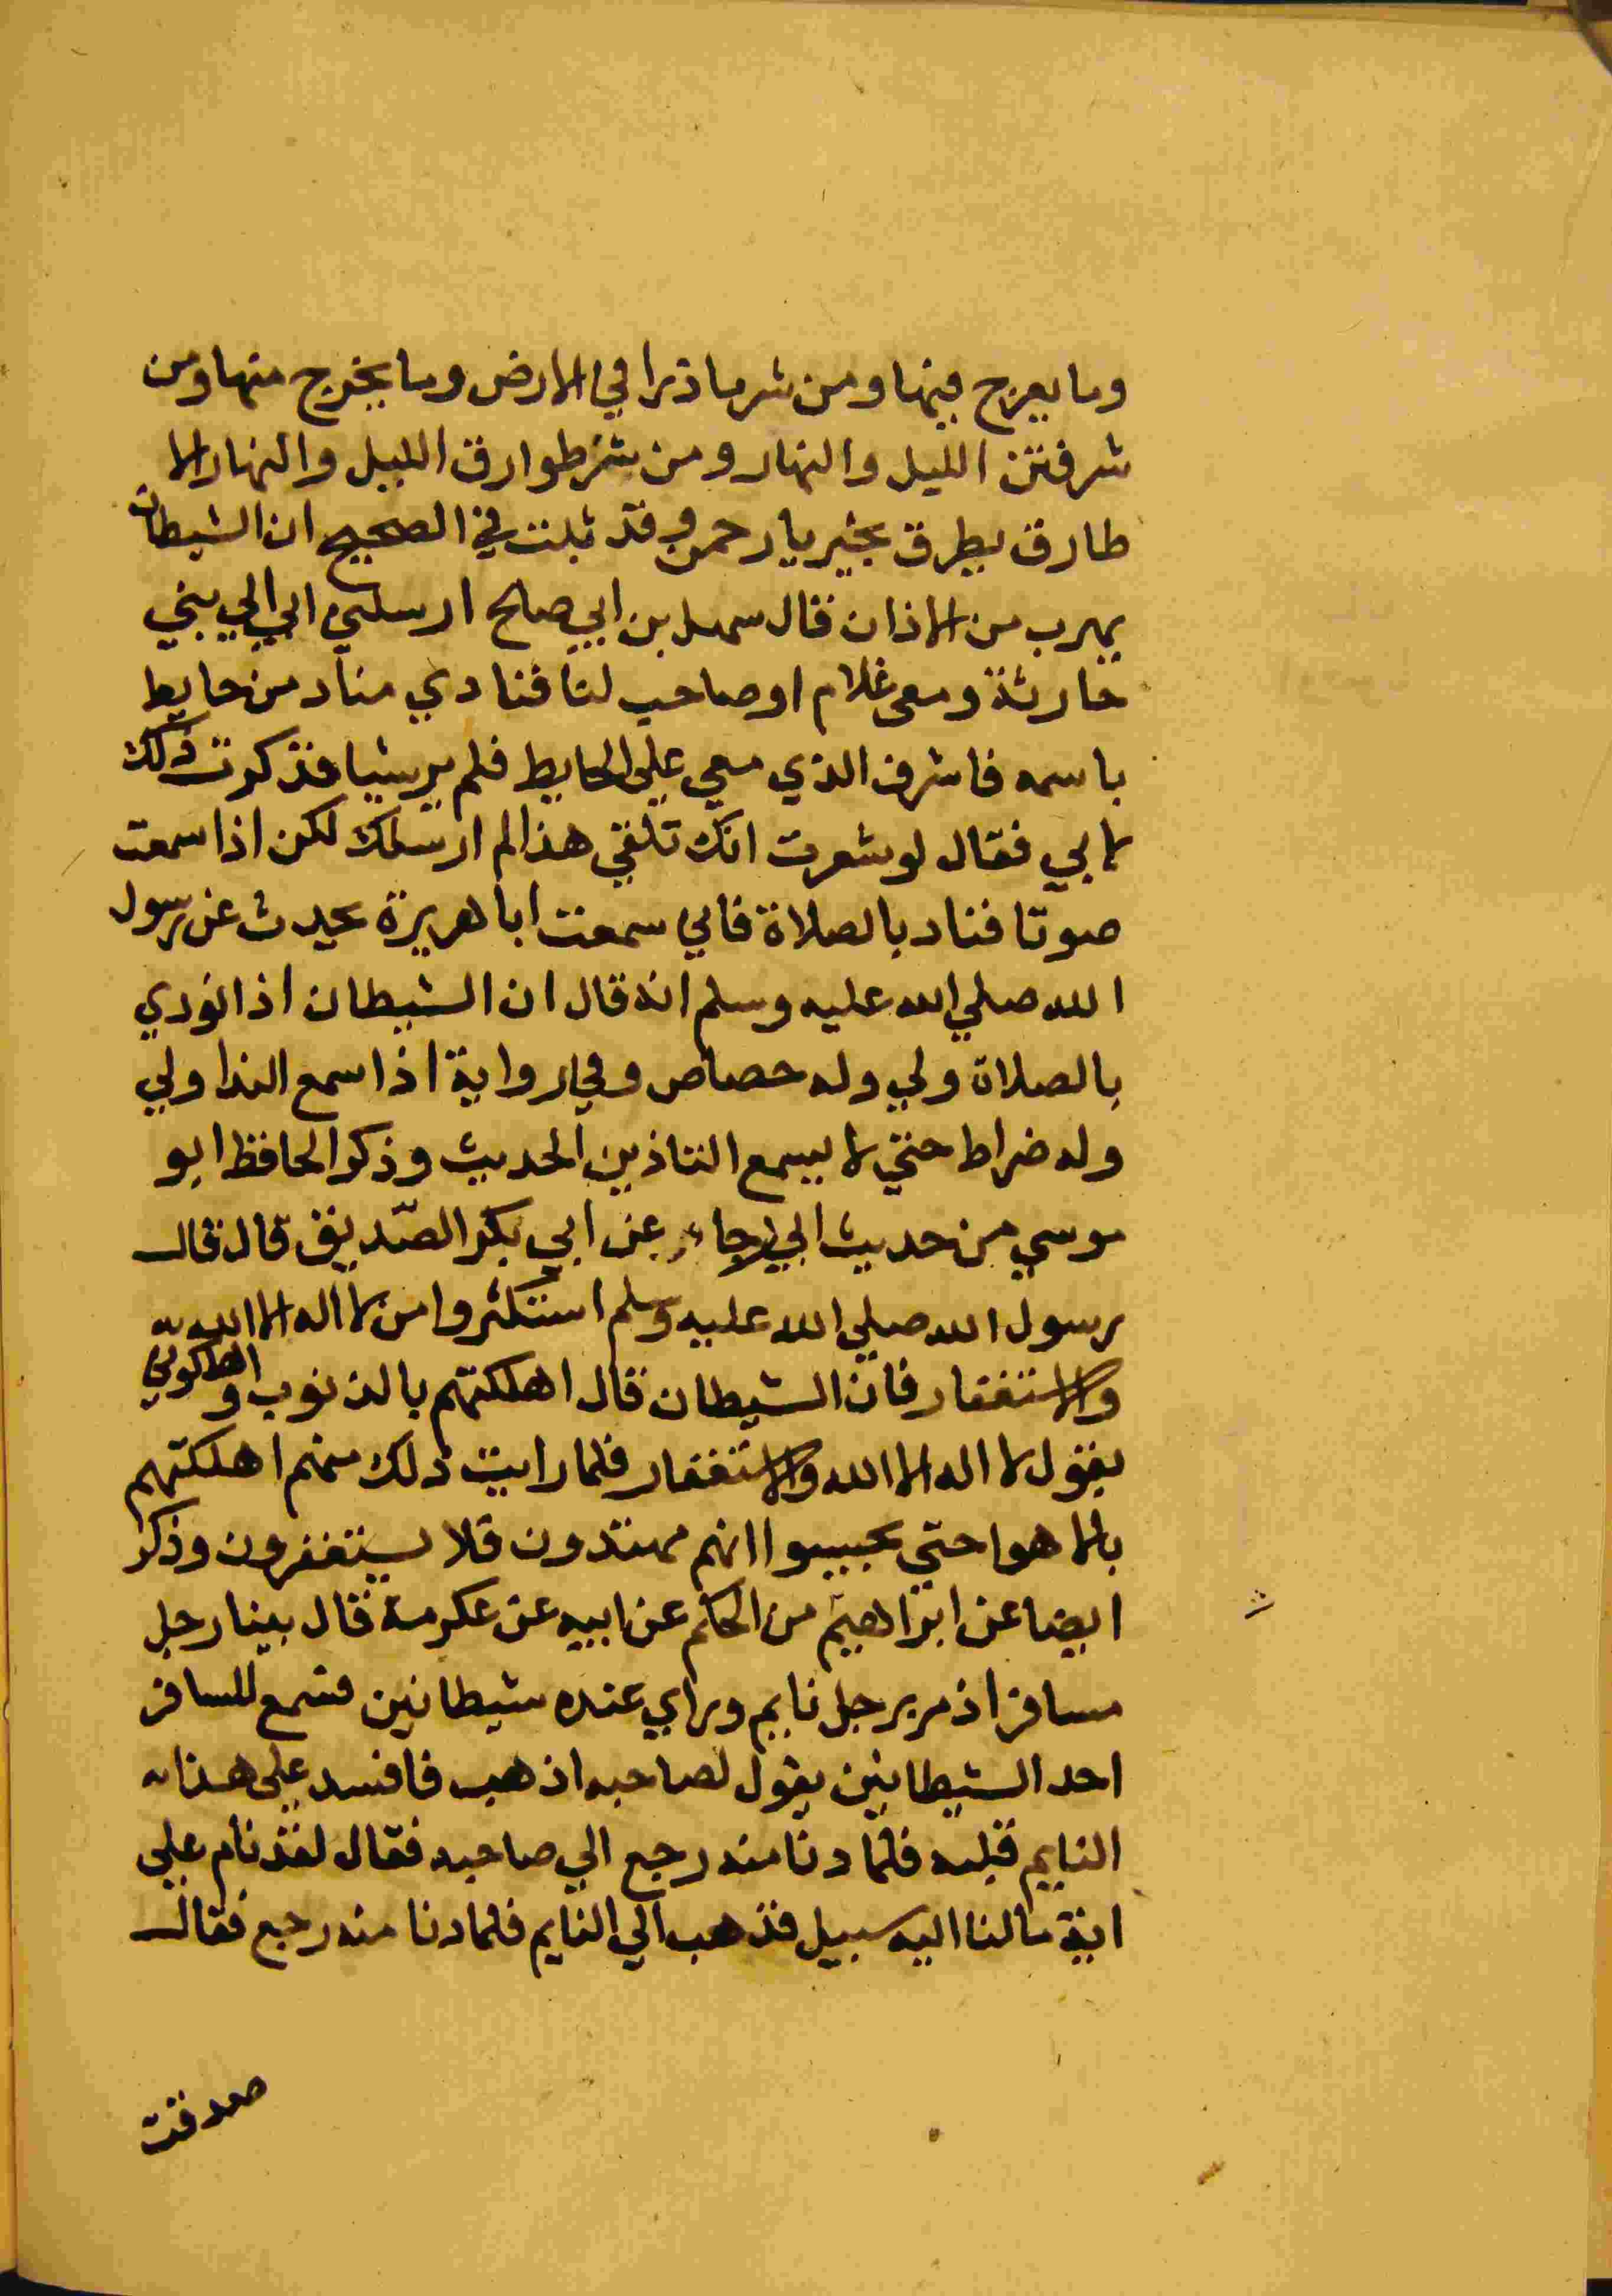 وما يعرج فيها ومن شر ما ذرا في الارض وما يخرج منها ومن
شر فتن الليل والنهار ومن شر طوارق الليل والنهار الا
طارق يطرق بخير يا رحمن وقد ثبت في الصحيح ان الشيطان
يهرب من الاذان قال سهل بن ابي صلح ارسلني ابي الي بني
حارثة ومعي غلام او صاحب لنا فنادي مناد من حايط
باسمه فاشرف الذي معي علي الحايط فلم ير شيا فذكرت ذلك
لابي فقال لو شعرت انك تلقي هذا لم ارسلك لكن اذا سمعت
صوتا فناد بالصلاة فاني سمعت ابا هريرة يحدث عن رسول
الله صلي الله عليه وسلم انه قال ان الشيطان اذا نودي
بالصلاة ولي وله حصاص وفي رواية اذا سمع الندا ولي
وله ضراط حتي لا يسمع التاذين الحديث وذكر الحافظ ابو
موسي من حديث ابي رجاء عن ابي بكر الصديق قال قال
رسول الله صلي الله عليه وسلم استكثروا من لا اله الا الله
والاستغفار فان الشيطان قال اهلكتهم بالذنوب واهلكوني
بقول لا اله الا الله والاستغفار فلما رايت ذلك منهم اهلكتهم
بالاهوا حتي يحسبوا انهم مهتدون فلا يستغفرون وذكر
ايضا عن ابراهيم من الحكم عن ابيه عن عكرمة قال بينا رجل
مسافر اذ مر برجل نايم وراي عنده شيطانين فسمع المسافر
احد الشيطانين يقول لصاحبه اذهب فافسد علي هذا
النايم قلبه فلما دنا منه رجع الي صاحبه فقال لقد نام علي
اية ما لنا اليه سبيل فذهب الي النايم فلما دنا منه رجع فقال
صدقت